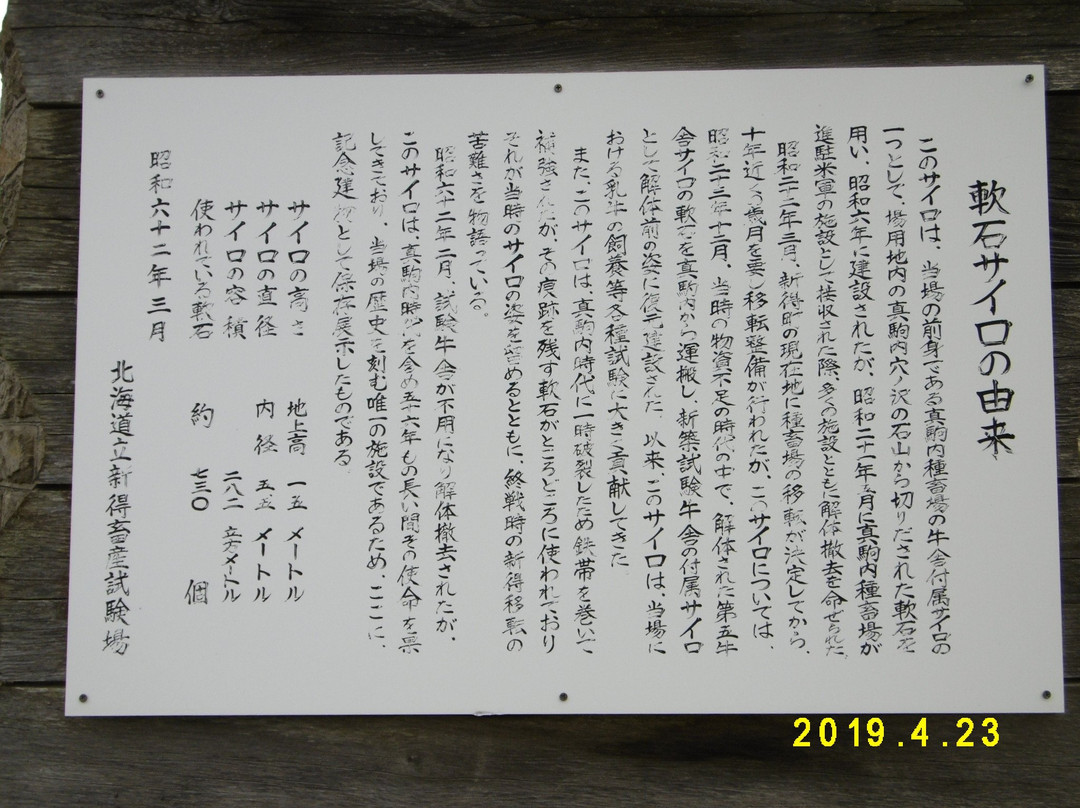 軟石サイロの由来
このサイロは、当場の前身である真駒内種畜場の牛舎付属サイロの
一つとして、場用地内の真駒内穴ノ沢の石山から切りだされた軟石を
用い、昭和六年に建設されたが、昭和二十一年 月に真駒内種畜場が
進駐米軍の施設として接収された際、多くの施設とともに解体撤去を命ぜられた。
昭和二十二年三月、新得町の現在地に種畜場の移転が決定してから、
十年近くの歳月を要し移転整備が行われたが、このサイロについては、
昭和二十三年十二月、当時の物資不足の時代の中で、解体された第五牛
舎サイロの軟石を真駒内から運搬し、新築試験牛舎の付属サイロ
として解体前の姿に復元建設された。以来、このサイロは、当場に
おける乳牛の飼養等各種試験に大きく貢献してきた
また、このサイロは、真駒内時代に一時破裂したため鉄帯を巻いて
補強されたが、その痕跡を残す軟石がところどころに使われており
それが当時のサイロの姿を留めるとともに、終戦時の新得移転の
苦難さを物語っている。
昭和六十二年二月、試験牛舎が不用になり解体撤去されたが、
このサイロは、真駒内時代を含め五十六年もの長い間その使命を果
してきており、当場の歴史を刻む唯一の施設であるため、ここに、
記念建物として保存展示したものである
サイロの高さ 地上高 一五 メートル
サイロの直径 内径 五.五 メートル
サイロの容積 二八二 立方メートル
使われている軟石 約 七三〇 個
昭和六十二年三月
北海道立新得畜産試験場
2019.4.23